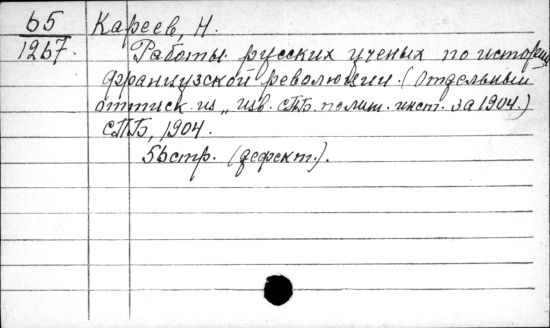 65 Кареев, Н.
1267. Работы русских ученых по истории
французской революции. (Отдельный
оттиск из „Изв. СПБ. полит. инст. за 1904.)
СПБ, 1904.
56 стр. (дефект.).